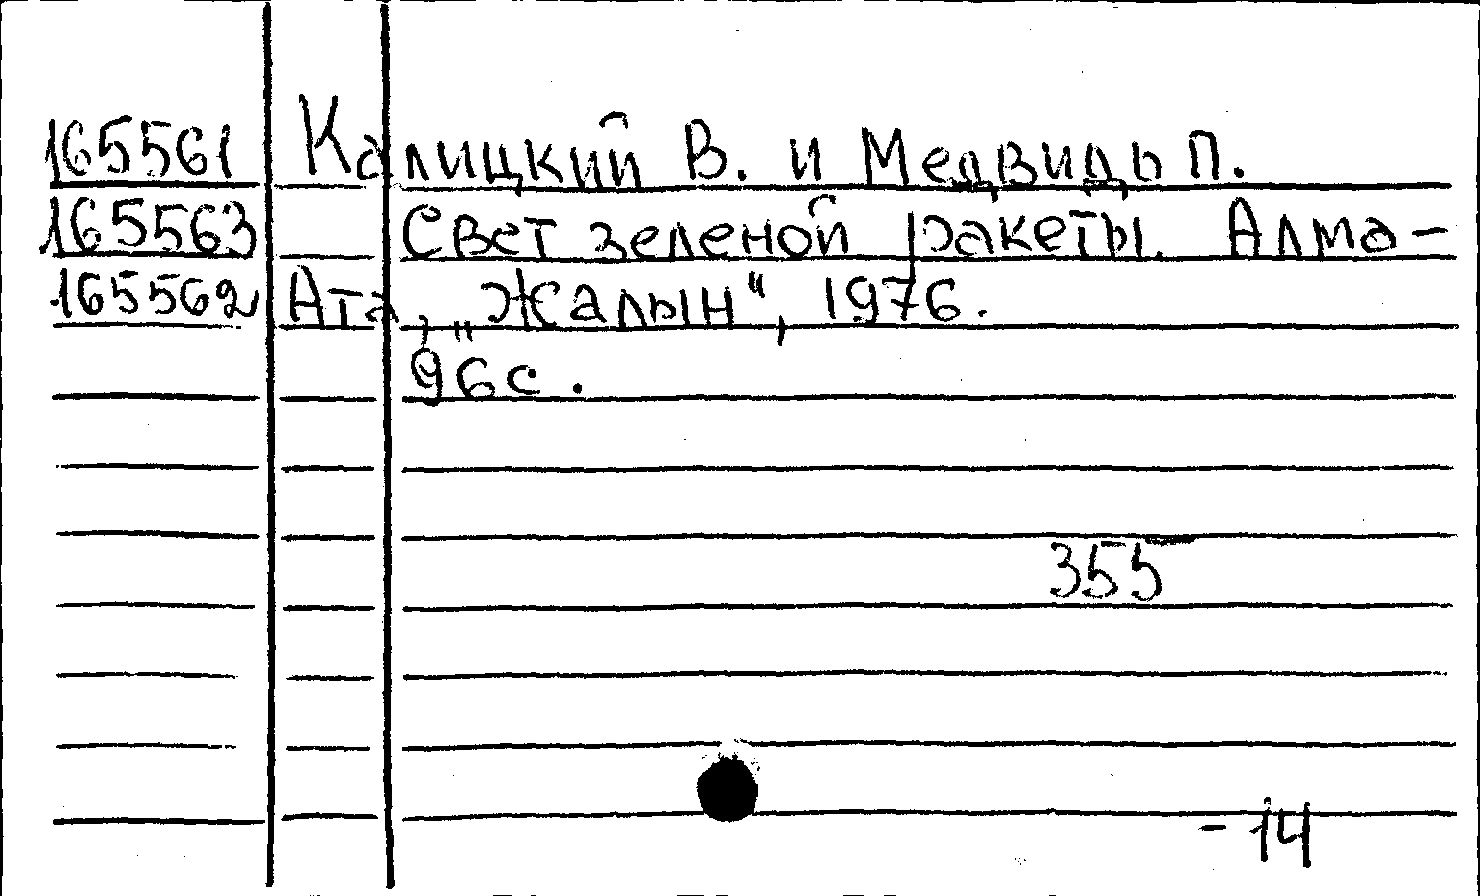 165561 Калицкий В. и Медвидь П.
165563 Свет зеленой ракеты. Алма-
165562 Ата, „Жалын“, 1976.
96с.
355
- 14